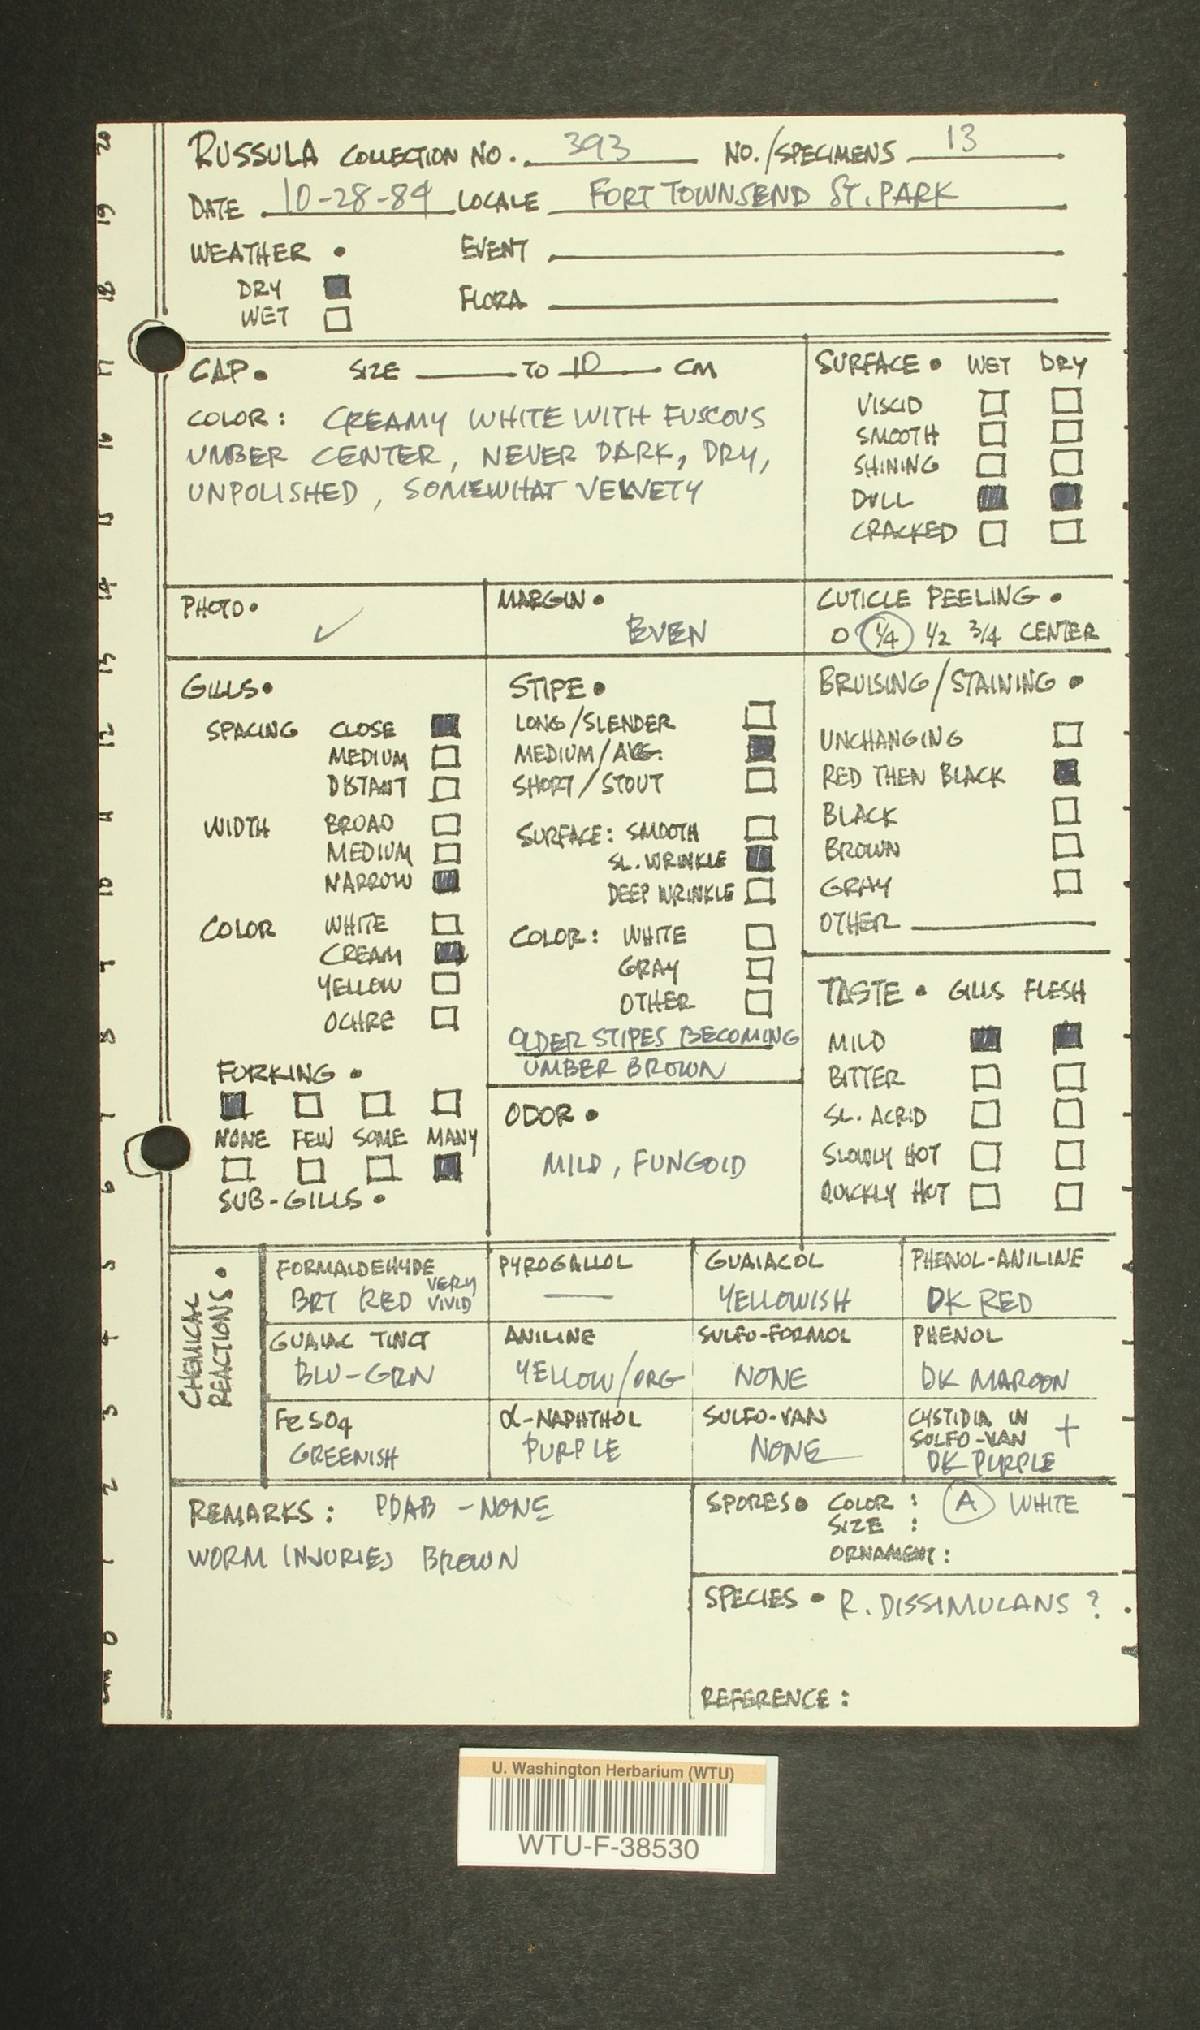 RUSSULA COLLECTION NO. 393 NO./SPECIMENS 13
DATE 10-28-84 LOCALE FORT TOWNSEND ST. PARK
WEATHER • EVENT
DRY FLORA
WET
CAP • SIZE TO 10 CM
COLOR: CREAMY WHITE WITH FUSCOUS
UMBER CENTER, NEVER DARK, DRY,
UNPOLISHED, SOMEWHAT VELVETY
SURFACE • WET DRY
VISCID
SMOOTH
SHINING
DULL
CRACKED
PHOTO • ✓
MARGIN •
EVEN
CUTICLE PEELING •
0 1/4 1/2 3/4 CENTER
GILLS •
SPACING CLOSE
MEDIUM
DISTANT
WIDTH BROAD
MEDIUM
NARROW
COLOR WHITE
CREAM
YELLOW
OCHRE
FORKING •
NONE FEW SOME MANY
SUB-GILLS •
STIPE •
LONG/SLENDER
MEDIUM/AVG.
SHORT/STOUT
SURFACE: SMOOTH
SL. WRINKLE
DEEP WRINKLE
COLOR: WHITE
GRAY
OTHER
OLDER STIPES BECOMING
UMBER BROWN
ODOR •
MILD, FUNGOID
BRUISING/STAINING •
UNCHANGING
RED THEN BLACK
BLACK
BROWN
GRAY
OTHER
TASTE • GILLS FLESH
MILD
BITTER
SL. ACRID
SLOWLY HOT
QUICKLY HOT
CHEMICAL REACTIONS •
FORMALDEHYDE
BRT RED VERY VIVID
PYROGALLOL
—
GUAIACOL
YELLOWISH
PHENOL-ANILINE
DK RED
GUAIAC TINCT
BLU-GRN
ANILINE
YELLOW/ORG
SULFO-FORMOL
NONE
PHENOL
DK MAROON
FeSO4
GREENISH
α-NAPHTHOL
PURPLE
SULFO-VAN
NONE
CYSTIDIA IN
SULFO-VAN +
DK PURPLE
REMARKS: PDAB - NONE
WORM INJURIES BROWN
SPORES • COLOR: A WHITE
SIZE :
ORNAMENT:
SPECIES • R. DISSIMULANS ?
REFERENCE:
20
19
18
17
16
15
14
13
12
11
10
9
8
7
6
5
4
3
2
1
0
cm
U. Washington Herbarium (WTU)
WTU-F-38530